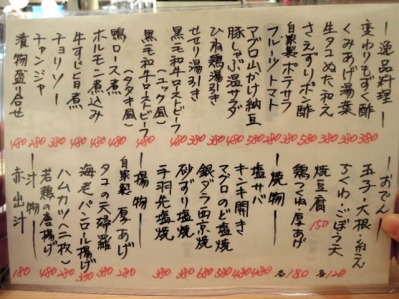 一逸品料理一
変わりもずく酢 380
くみあげ湯葉 380
生タコぬた和え 380
さえずりポン酢 480
自家製ポテサラ 380
フルーツトマト 380
マグロ山かけ納豆 580
豚しゃぶ温サラダ
ひね鶏湯引き
せせり湯引き 380
黒毛和牛ローストビーフ
(ユッケ風)
黒毛和牛ローストビーフ
(タタキ風)
鴨ロース煮 480
牛すじ旨煮 380
ホルモン煮込み 480
チョリソー 380
チャンジャ 280
漬物盛り合せ 480
一おでん一
玉子・大根・糸こん
ちくわ・ごぼう天 各120
焼豆腐 150
鶏つくね・厚あげ 各180
一焼物一
塩サバ 480
キンキ開き 480
マグロのど塩焼
銀ダラ西京焼 580
砂ずり塩焼 380
手羽先塩焼 380
一揚物一
自家製厚あげ 280
タコの天婦羅 380
海老パンロール揚げ 380
ハムカツ(二枚) 280
若鶏の唐揚げ 480
一汁物一
赤出汁 180